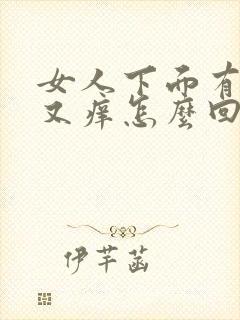 女人下面有
又痒怎麼回
伊芊菡